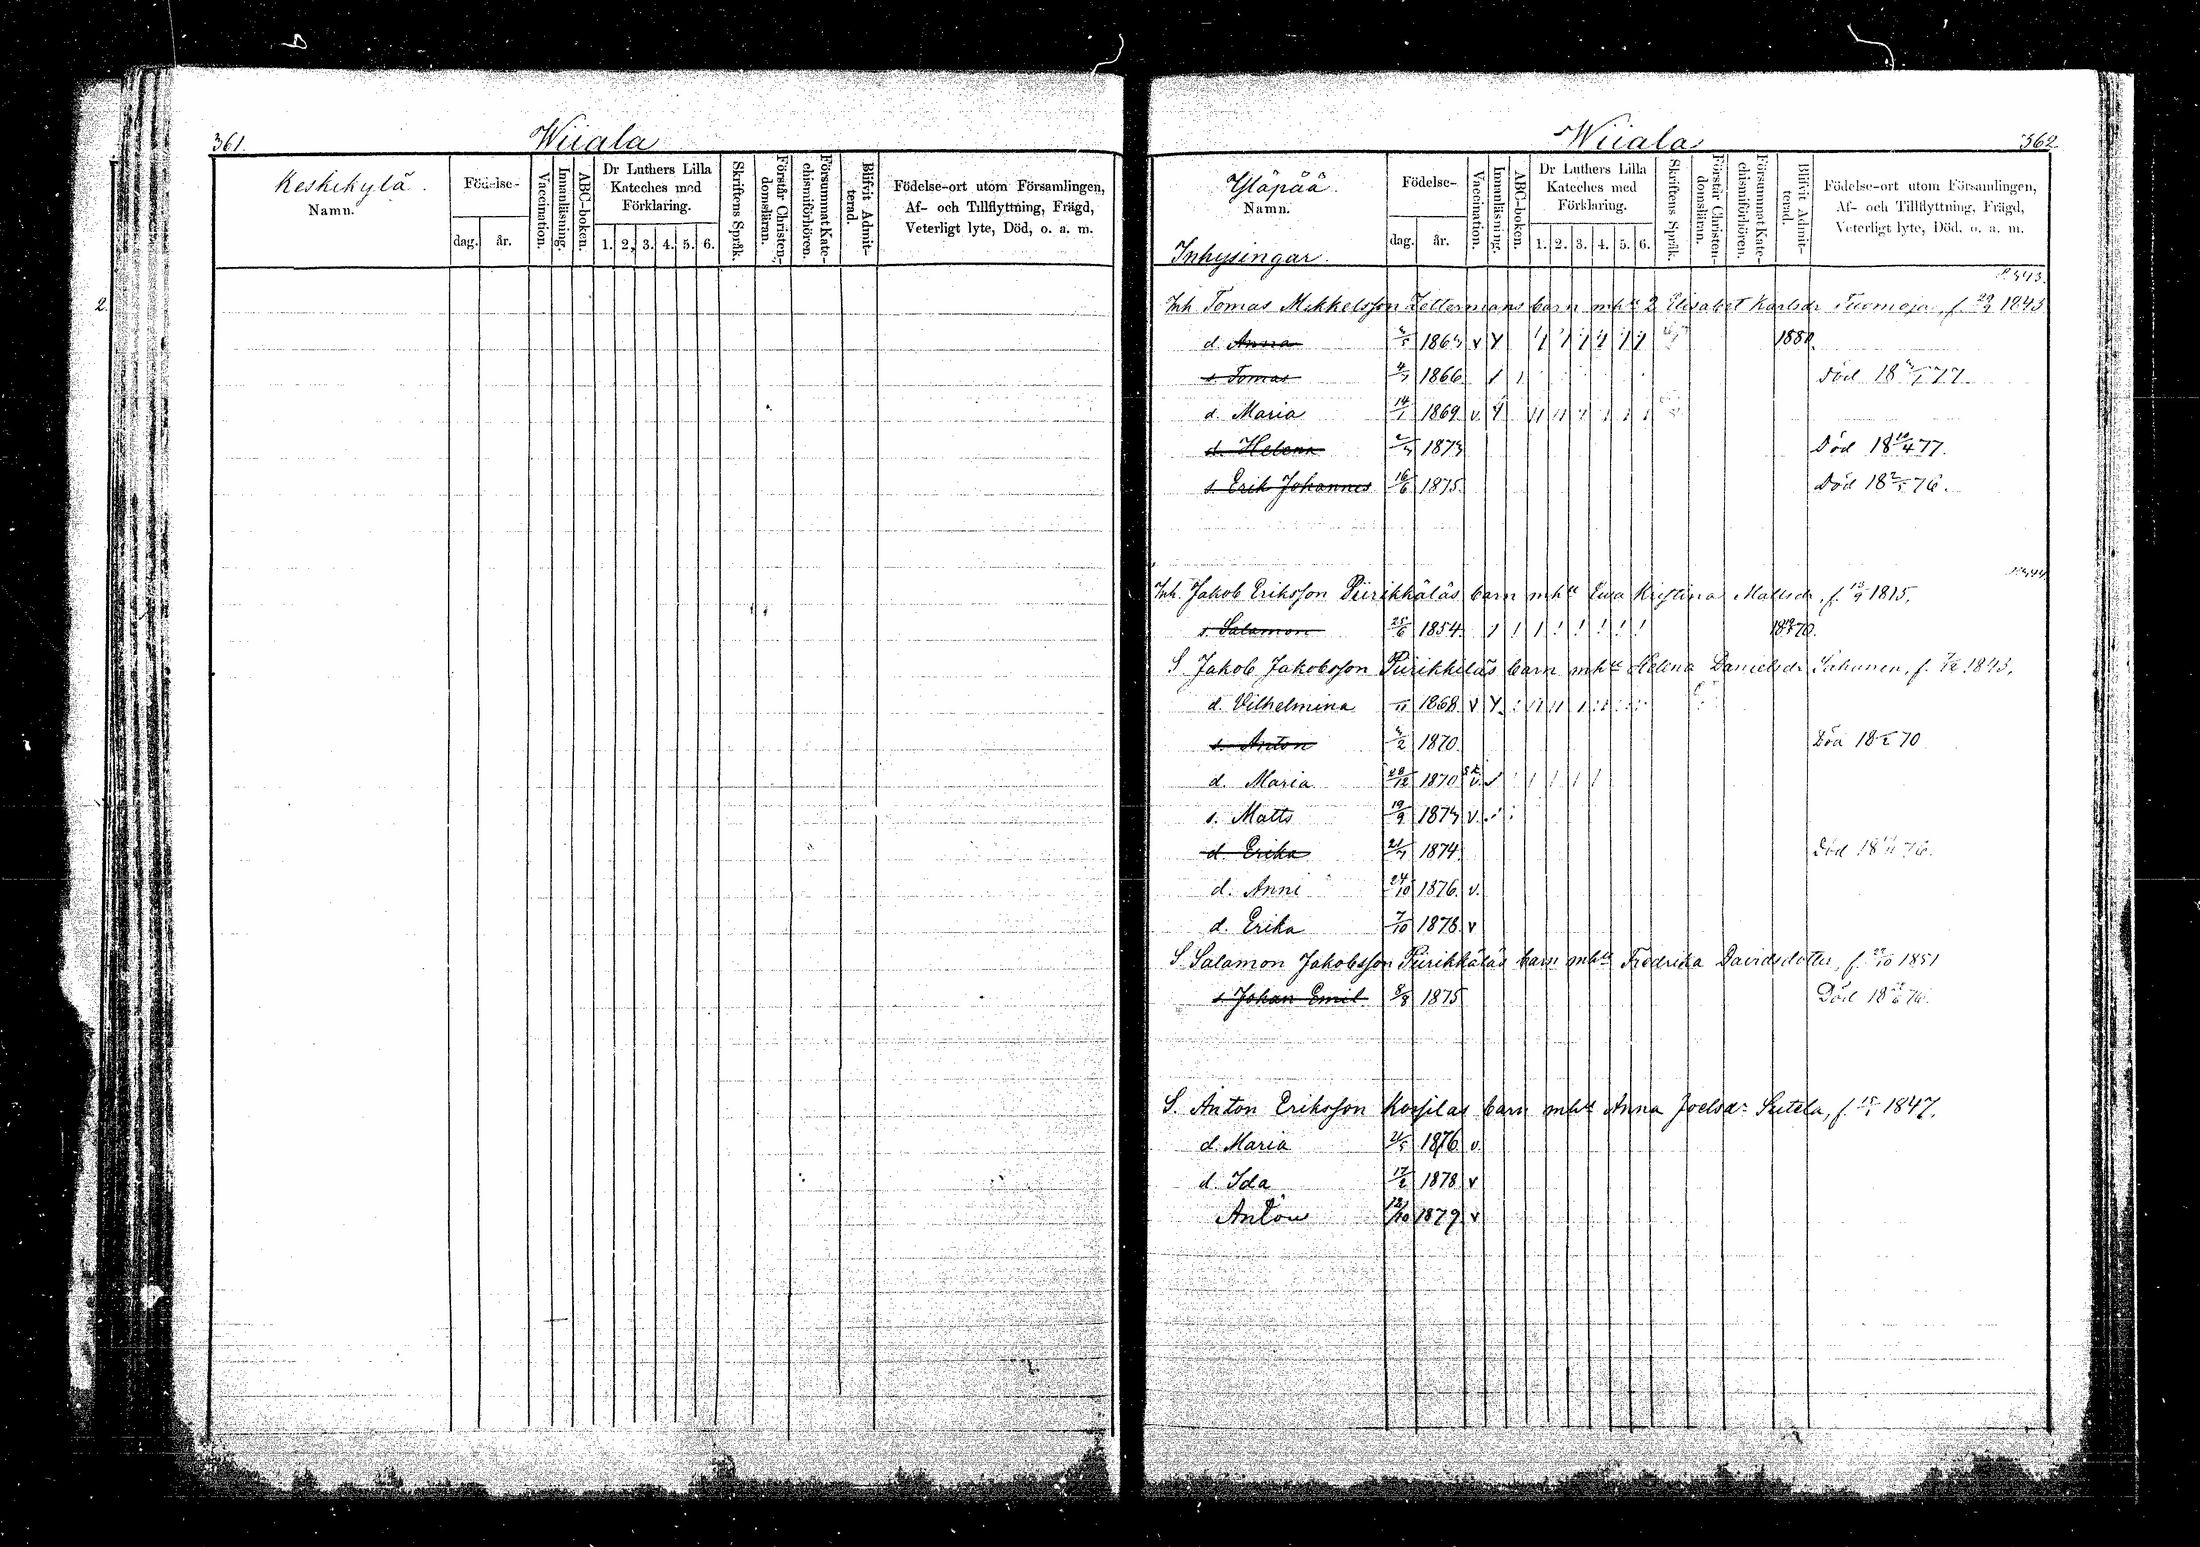 361. Wiiala
Keskikylä.
Namn.
Födelse-
dag. år.
Vaccination.
Innanläsning.
ABC-boken.
Dr Luthers Lilla
Kateches med
Förklaring.
1. 2. 3. 4. 5. 6.
Skriftens Språk.
Förstår Christen-
domsläran.
Försummat Kate-
chismiförhören.
Blifvit Admit-
terad.
Födelse-ort utom Församlingen,
Af- och Tillflyttning, Frägd,
Veterligt lyte, Död, o. a. m.
2.
Wiiala 362
Yläpää.
Namn.
Inhysingar.
Födelse-
dag. år.
Vaccination.
Innanläsning.
ABC-boken.
Dr Luthers Lilla
Kateches med
Förklaring.
1. 2. 3. 4. 5. 6.
Skriftens Språk.
Förstår Christen-
domsläran.
Försummat Kate-
chismiförhören.
Blifvit Admit-
terad.
Födelse-ort utom Församlingen,
Af- och Tillflyttning, Frägd,
Veterligt lyte, Död, o. a. m.
P. 343.
Inh Tomas Mikkelsson Zettermans barn m hu 2 Elisabet Karlsdr Tuomoja, f. 1843
d. Anna 1863 v 1880.
s. Tomas 1866 Död 18 77.
d. Maria 14/1 1869 v.
d. Helena 1873 Död 18 10/4 77.
s. Erik Johannes 16/6 1875. Död 18 76.
Inh. Jakob Eriksson Piirikkäläs barn m hu Ewa Kristina Mattsdr, f. 1815.
s. Salamon 25/6 1854 1870.
S Jakob Jakobsson Piirikkiläs barn m hu Helena Danielsdr f. 1843.
d. Vilhelmina /11 1868 v
s. Anton 1870. Död 18 70
d. Maria 1870 v.
s. Matts 19/9 1873 v.
d. Erika 1874. Död 18 76.
d. Anni 24/10 1876. v.
d. Erika 7/10 1878. v
S Salamon Jakobsson Piirikkäläs barn m hu Fredrika Davidsdotter, f. 1851
s Johan Emil 8/8 1875 Död 18 76.
S. Anton Eriksson Korpilas barn m hu Anna Joelsdr Sutela, f. 1847.
d. Maria 1876 v.
d. Ida 17/2 1878 v
Anton 12/10 1879 v